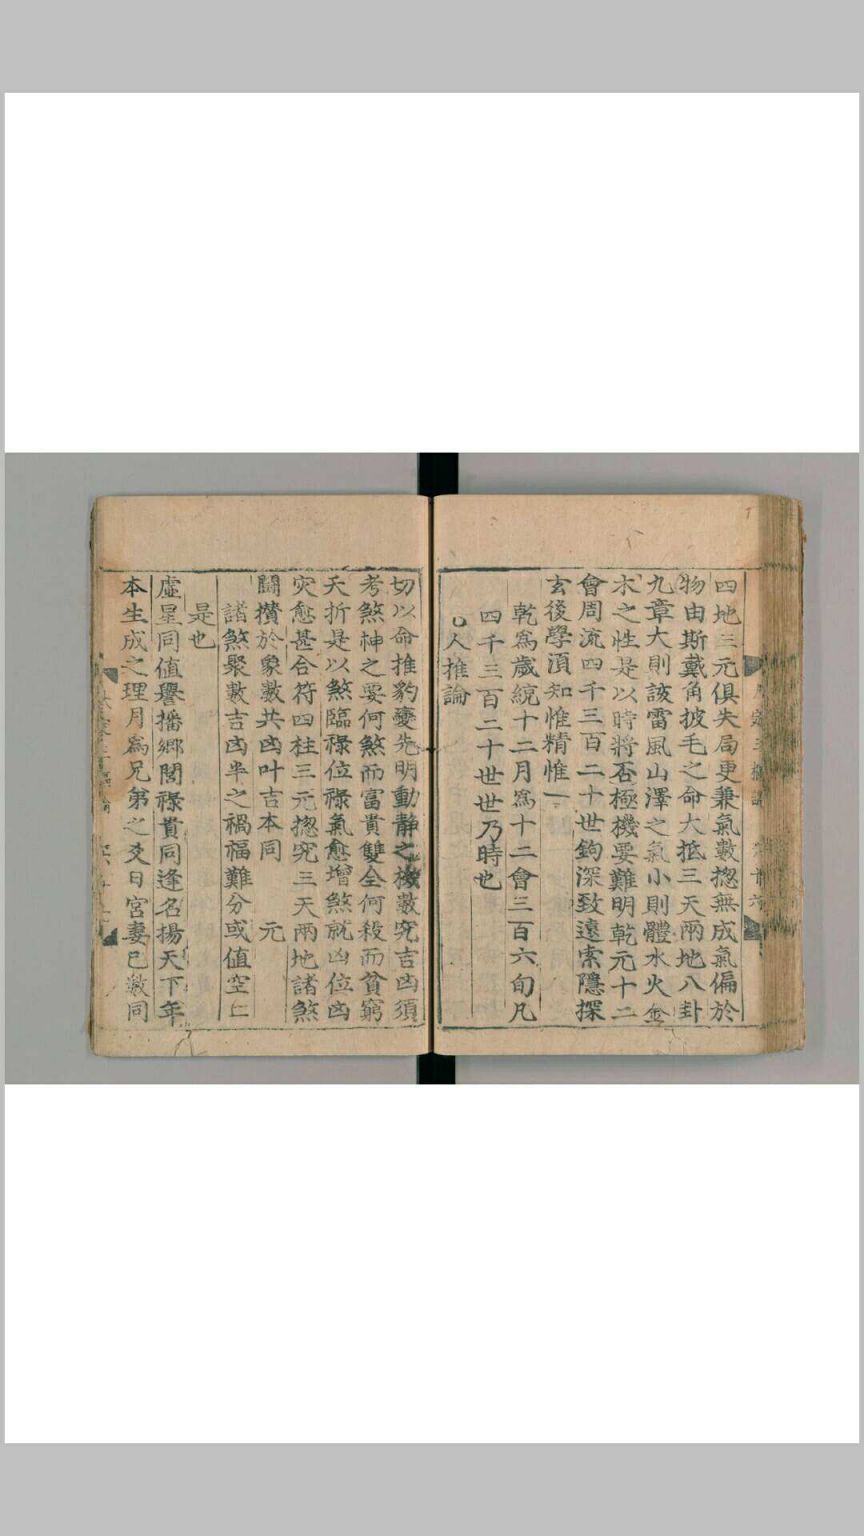 四地三元俱失局更兼氣數揔無成氣偏於
物由斯戴角披毛之命大抵三天兩地八卦
九章大則該雷風山澤之氣小則體水火金
木之性是以時將否極機要難明乾元十二
會周流四千三百二十世鉤深致遠索隱探
玄後學湏知惟精惟一
乾爲歲統十二月爲十二會三百六旬凡
四千三百二十世世乃時也
人推論
切以命推豹變先明動靜之機數究吉凶須
考煞神之要何煞而富貴雙全何殺而貧窮
夭折是以煞臨祿位祿氣愈增煞就凶位凶
灾愈甚合符四柱三元揔究三天兩地諸煞
闘攢於象數共凶叶吉本同 元
諸煞聚數吉凶半之禍福難分或值空亡
是也
虛星同值譽播鄉閭祿貴同逢名揚天下年
本生成之理月爲兄弟之爻日宮妻已數同